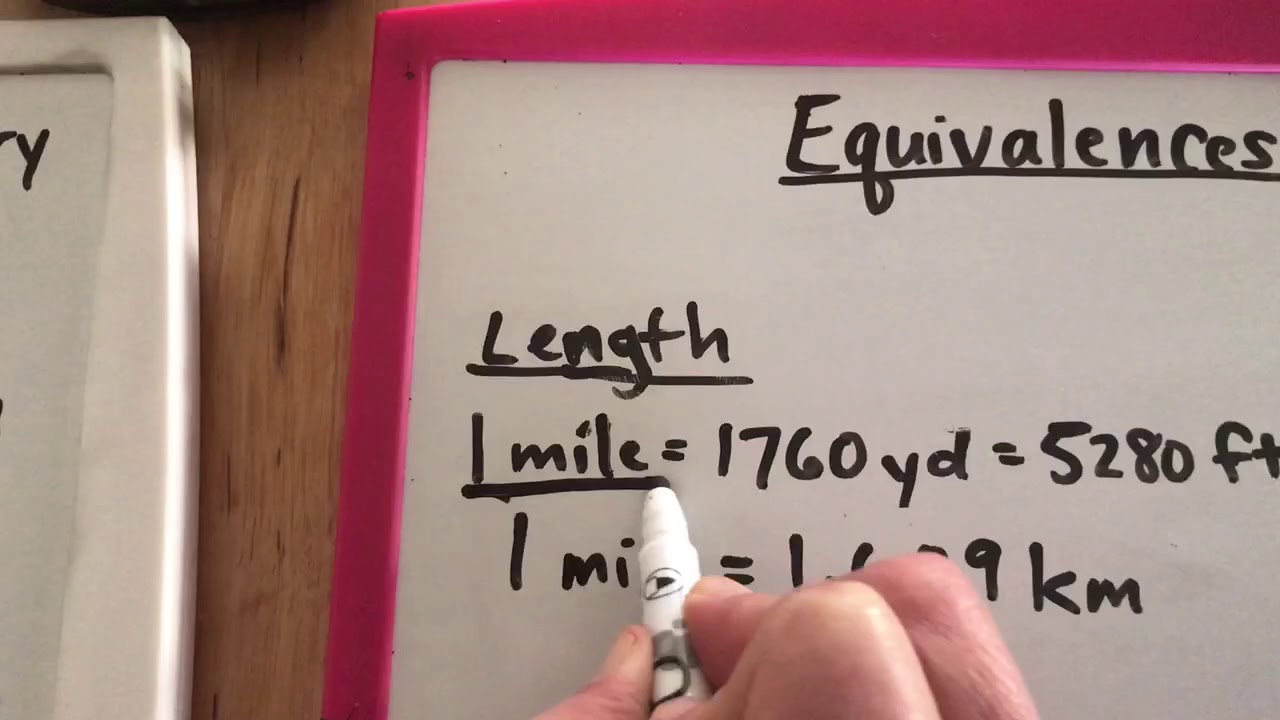 Equivalences
Length
1 mile = 1760 yd = 5280 ft
1 = km